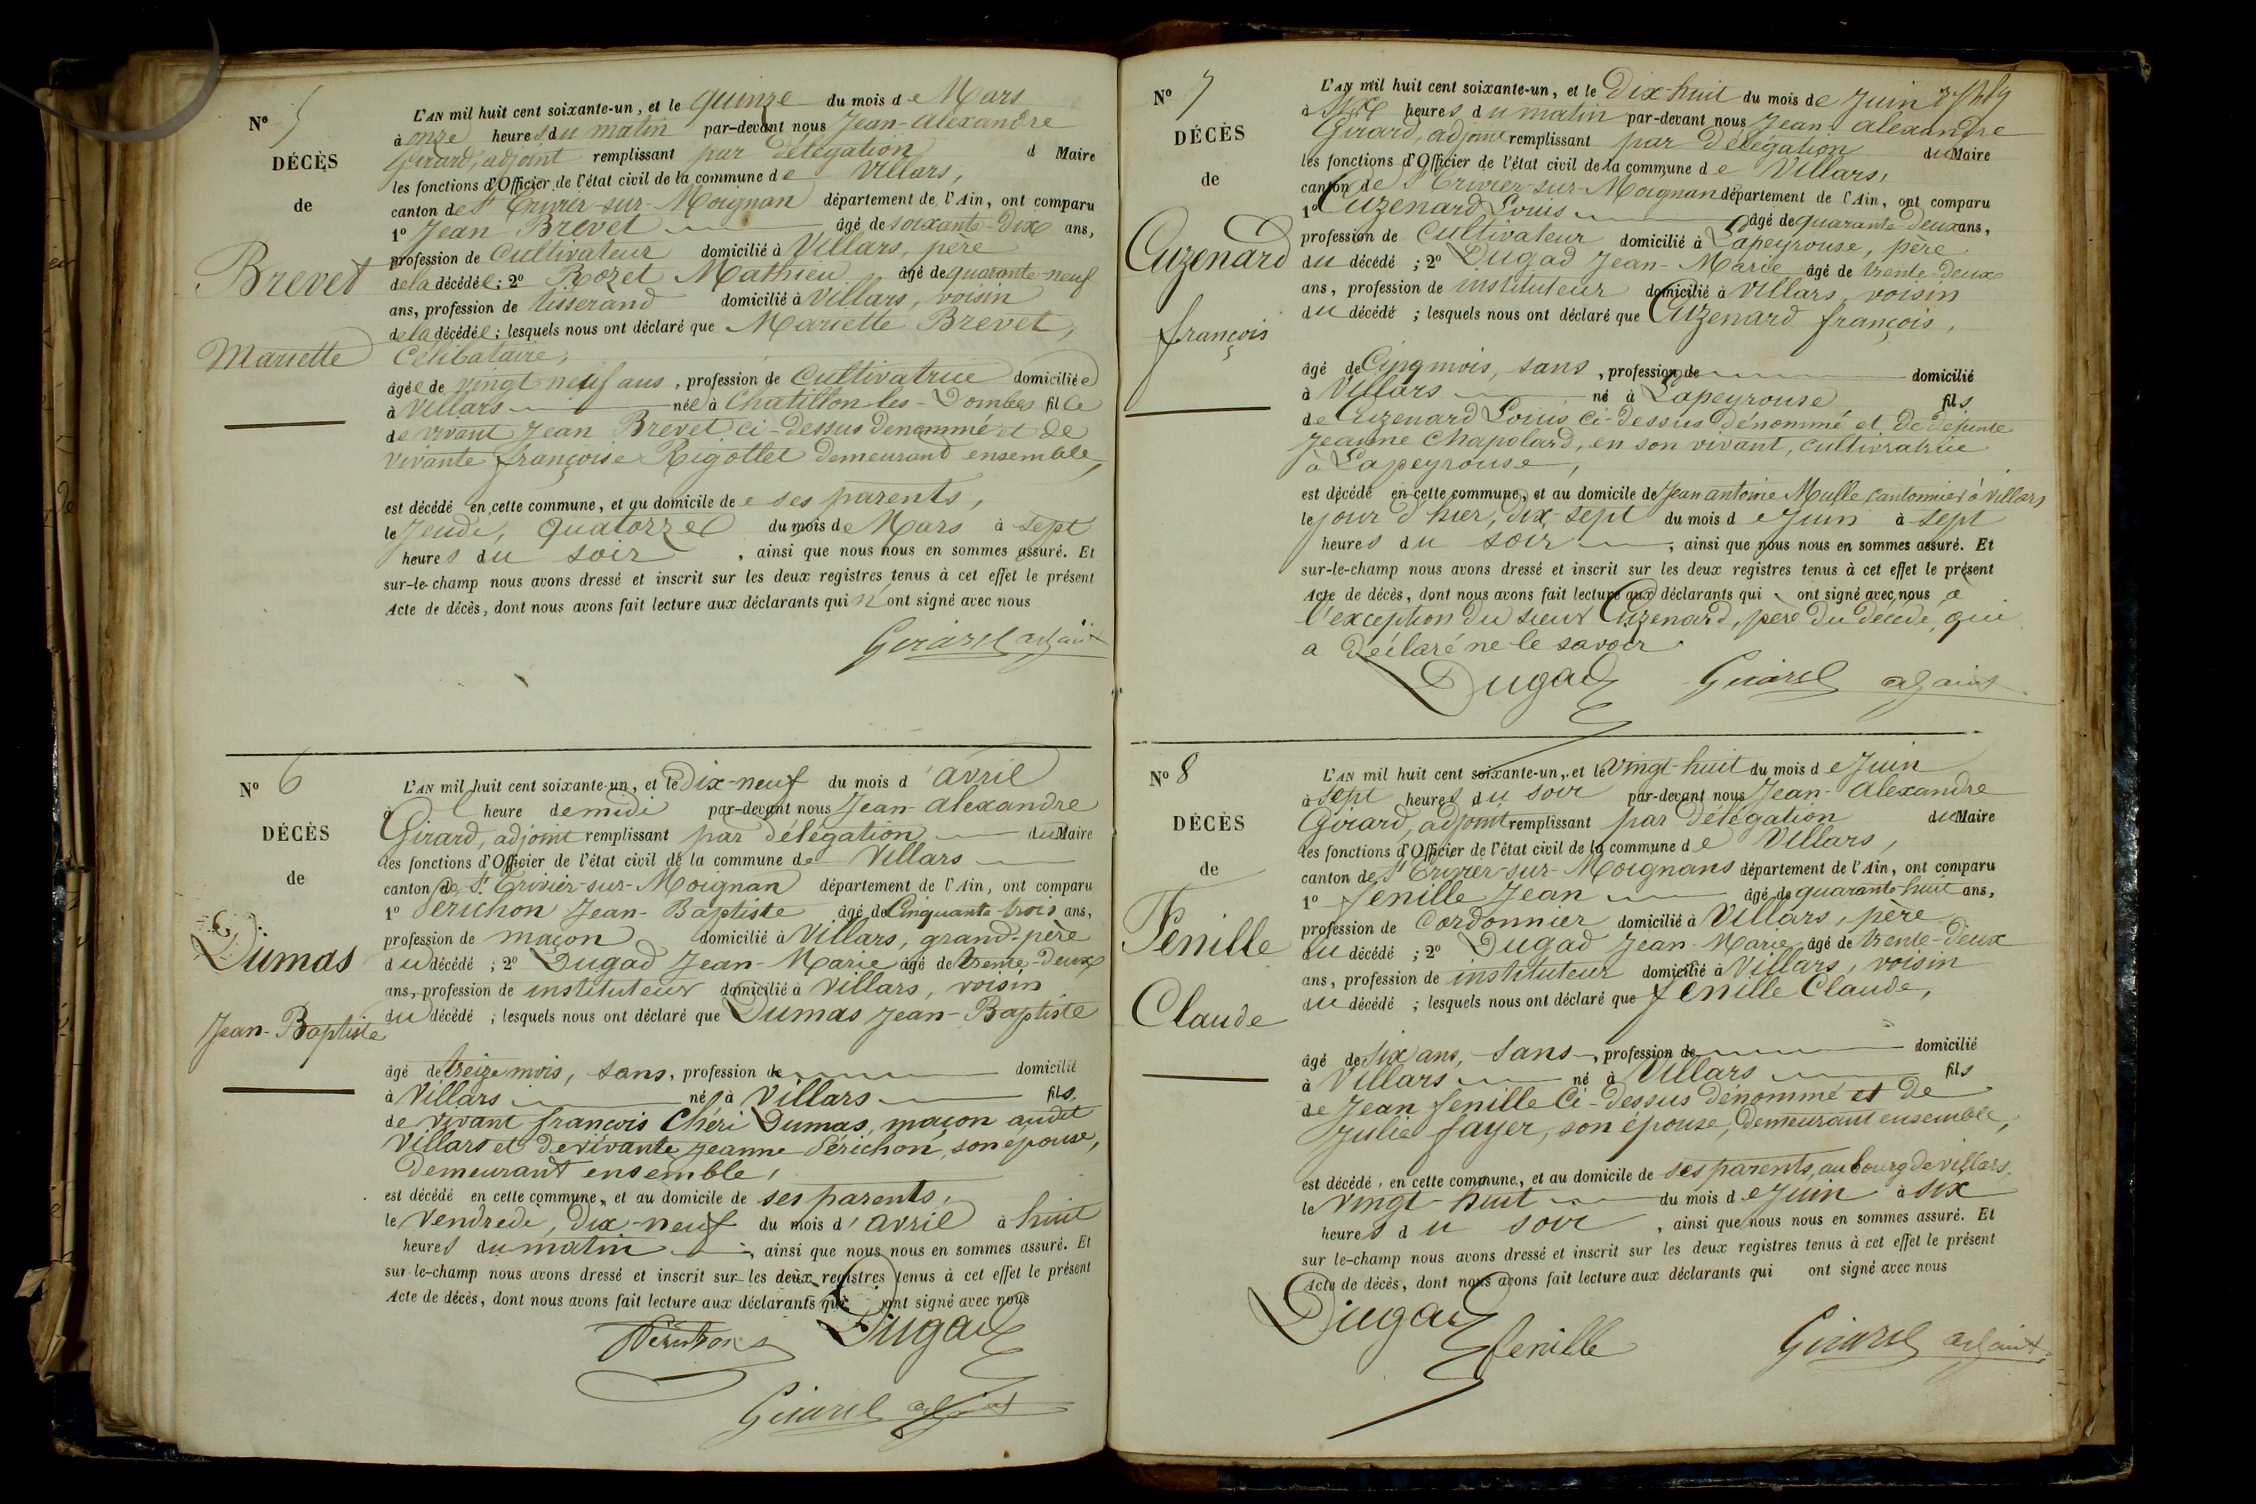 N° 5
DÉCÈS
de
Brevet
Mariette
L'AN mil huit cent soixante-un, et le quinze du mois de Mars
à onze heures du matin par-devant nous Jean-Alexandre
Girard, adjoint remplissant par délégation d Maire
les fonctions d'Officier de l'état civil de la commune de Villars,
canton de St Trivier-sur-Moignan département de l'Ain, ont comparu
1° Jean Brevet âgé de soixante-dix ans,
profession de cultivateur domicilié à Villars, père
de la décédée; 2° Rozet Mathieu, âgé de quarante-neuf
ans, profession de tisserand domicilié à Villars, voisin
de la décédée; lesquels nous ont déclaré que Mariette Brevet,
Célibataire,
âgée de vingt neuf ans, profession de Cultivatrice domiciliée
à Villars née à Chatillon-les-Dombes fille
de vivant Jean Brevet ci-dessus dénommé et de
vivante françoise Rigottet demeurand ensemble,
est décédé en cette commune, et au domicile de ses parents,
le Jeudi, quatorze du mois de Mars à sept
heures du soir, ainsi que nous nous en sommes assuré. Et
sur-le-champ nous avons dressé et inscrit sur les deux registres tenus à cet effet le présent
Acte de décès, dont nous avons fait lecture aux déclarants qui n'ont signé avec nous
Girard adjoint
N° 6
DÉCÈS
de
Dumas
Jean-Baptiste
L'AN mil huit cent soixante-un, et le Dix-neuf du mois d'avril
à l heure de midi par-devant nous Jean-Alexandre
Girard, adjoint remplissant par délégation du Maire
les fonctions d'Officier de l'état civil de la commune de Villars
canton de St Trivier-sur-Moignan département de l'Ain, ont comparu
1° Périchon Jean-Baptiste âgé de Cinquante-trois ans,
profession de maçon domicilié à Villars, grand-père
du décédé; 2° Dugad Jean-Marie âgé de trente-deux
ans, profession de instituteur domicilié à Villars, voisin
du décédé; lesquels nous ont déclaré que Dumas Jean-Baptiste
âgé de treize mois, sans, profession de domicilié
à Villars né à Villars fils
de vivant françois Chéri Dumas, maçon audit
Villars et de vivante Jeanne Périchon, son épouse,
demeurant ensemble,
est décédé en cette commune, et au domicile de ses parents,
le Vendredi, dix-neuf du mois d'avril à huit
heures du matin, ainsi que nous nous en sommes assuré. Et
sur-le-champ nous avons dressé et inscrit sur les deux registres tenus à cet effet le présent
Acte de décès, dont nous avons fait lecture aux déclarants qui ont signé avec nous
Périchon Dugad
Girard adjoint
N° 7
DÉCÈS
de
Cuzenard
françois
L'AN mil huit cent soixante-un, et le Dix huit du mois de Juin
à six heures du matin par-devant nous Jean-Alexandre
Girard, adjoint remplissant par délégation du Maire
les fonctions d'Officier de l'état civil de la commune de Villars,
canton de St Trivier-sur-Moignan département de l'Ain, ont comparu
1° Cuzenard Louis âgé de quarante deux ans,
profession de Cultivateur domicilié à Lapeyrouse, père
du décédé; 2° Dugad Jean-Marie âgé de trente-deux
ans, profession de instituteur domicilié à Villars voisin
du décédé; lesquels nous ont déclaré que Cuzenard françois,
âgé de Cinq mois, sans, profession de domicilié
à Villars né à Lapeyrouse fils
de Cuzenard Louis ci-dessus dénommé et de défunte
Jeanne Chapolard, en son vivant, cultivatrice
à Lapeyrouse,
est décédé en cette commune, et au domicile de Jean antoine Mulle, cantonnier à Villars
le jour d'hier, dix-sept du mois de Juin à sept
heures du soir, ainsi que nous nous en sommes assuré. Et
sur-le-champ nous avons dressé et inscrit sur les deux registres tenus à cet effet le présent
Acte de décès, dont nous avons fait lecture aux déclarants qui ont signé avec nous à
l'exception du sieur Cuzenard, père du décédé, qui
a déclaré ne le savoir
Dugad Girard adjoint
N° 8
DÉCÈS
de
Fenille
Claude
L'AN mil huit cent soixante-un, et le vingt-huit du mois de Juin
à sept heures du soir par-devant nous Jean-Alexandre
Girard, adjoint remplissant par délégation du Maire
les fonctions d'Officier de l'état civil de la commune de Villars,
canton de St Trivier-sur-Moignans département de l'Ain, ont comparu
1° fenille Jean âgé de quarante-huit ans,
profession de Cordonnier domicilié à Villars, père
du décédé; 2° Dugad Jean-Marie âgé de trente-deux
ans, profession de instituteur domicilié à Villars, voisin
du décédé; lesquels nous ont déclaré que fenille Claude,
âgé de six ans, sans, profession de domicilié
à Villars né à Villars fils
de Jean fenille Ci-dessus dénommé et de
Julie fayer, son épouse, demeurant ensemble,
est décédé en cette commune, et au domicile de ses parents, au bourg de villars.
le vingt-huit du mois de Juin à six
heures du soir, ainsi que nous nous en sommes assuré. Et
sur le-champ nous avons dressé et inscrit sur les deux registres tenus à cet effet le présent
Acte de décès, dont nous avons fait lecture aux déclarants qui ont signé avec nous
Dugad
fenille Girard adjoint